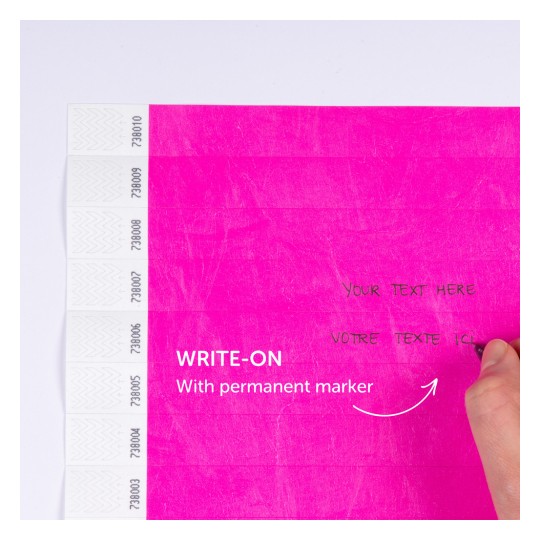 738010
738009
738008
738007
YOUR TEXT HERE
738006
VOTRE TEXTE ICI
WRITE-ON
With permanent marker
738005
738004
738003